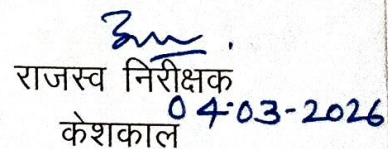 राजस्व निरीक्षक
04-03-2026
केशकाल